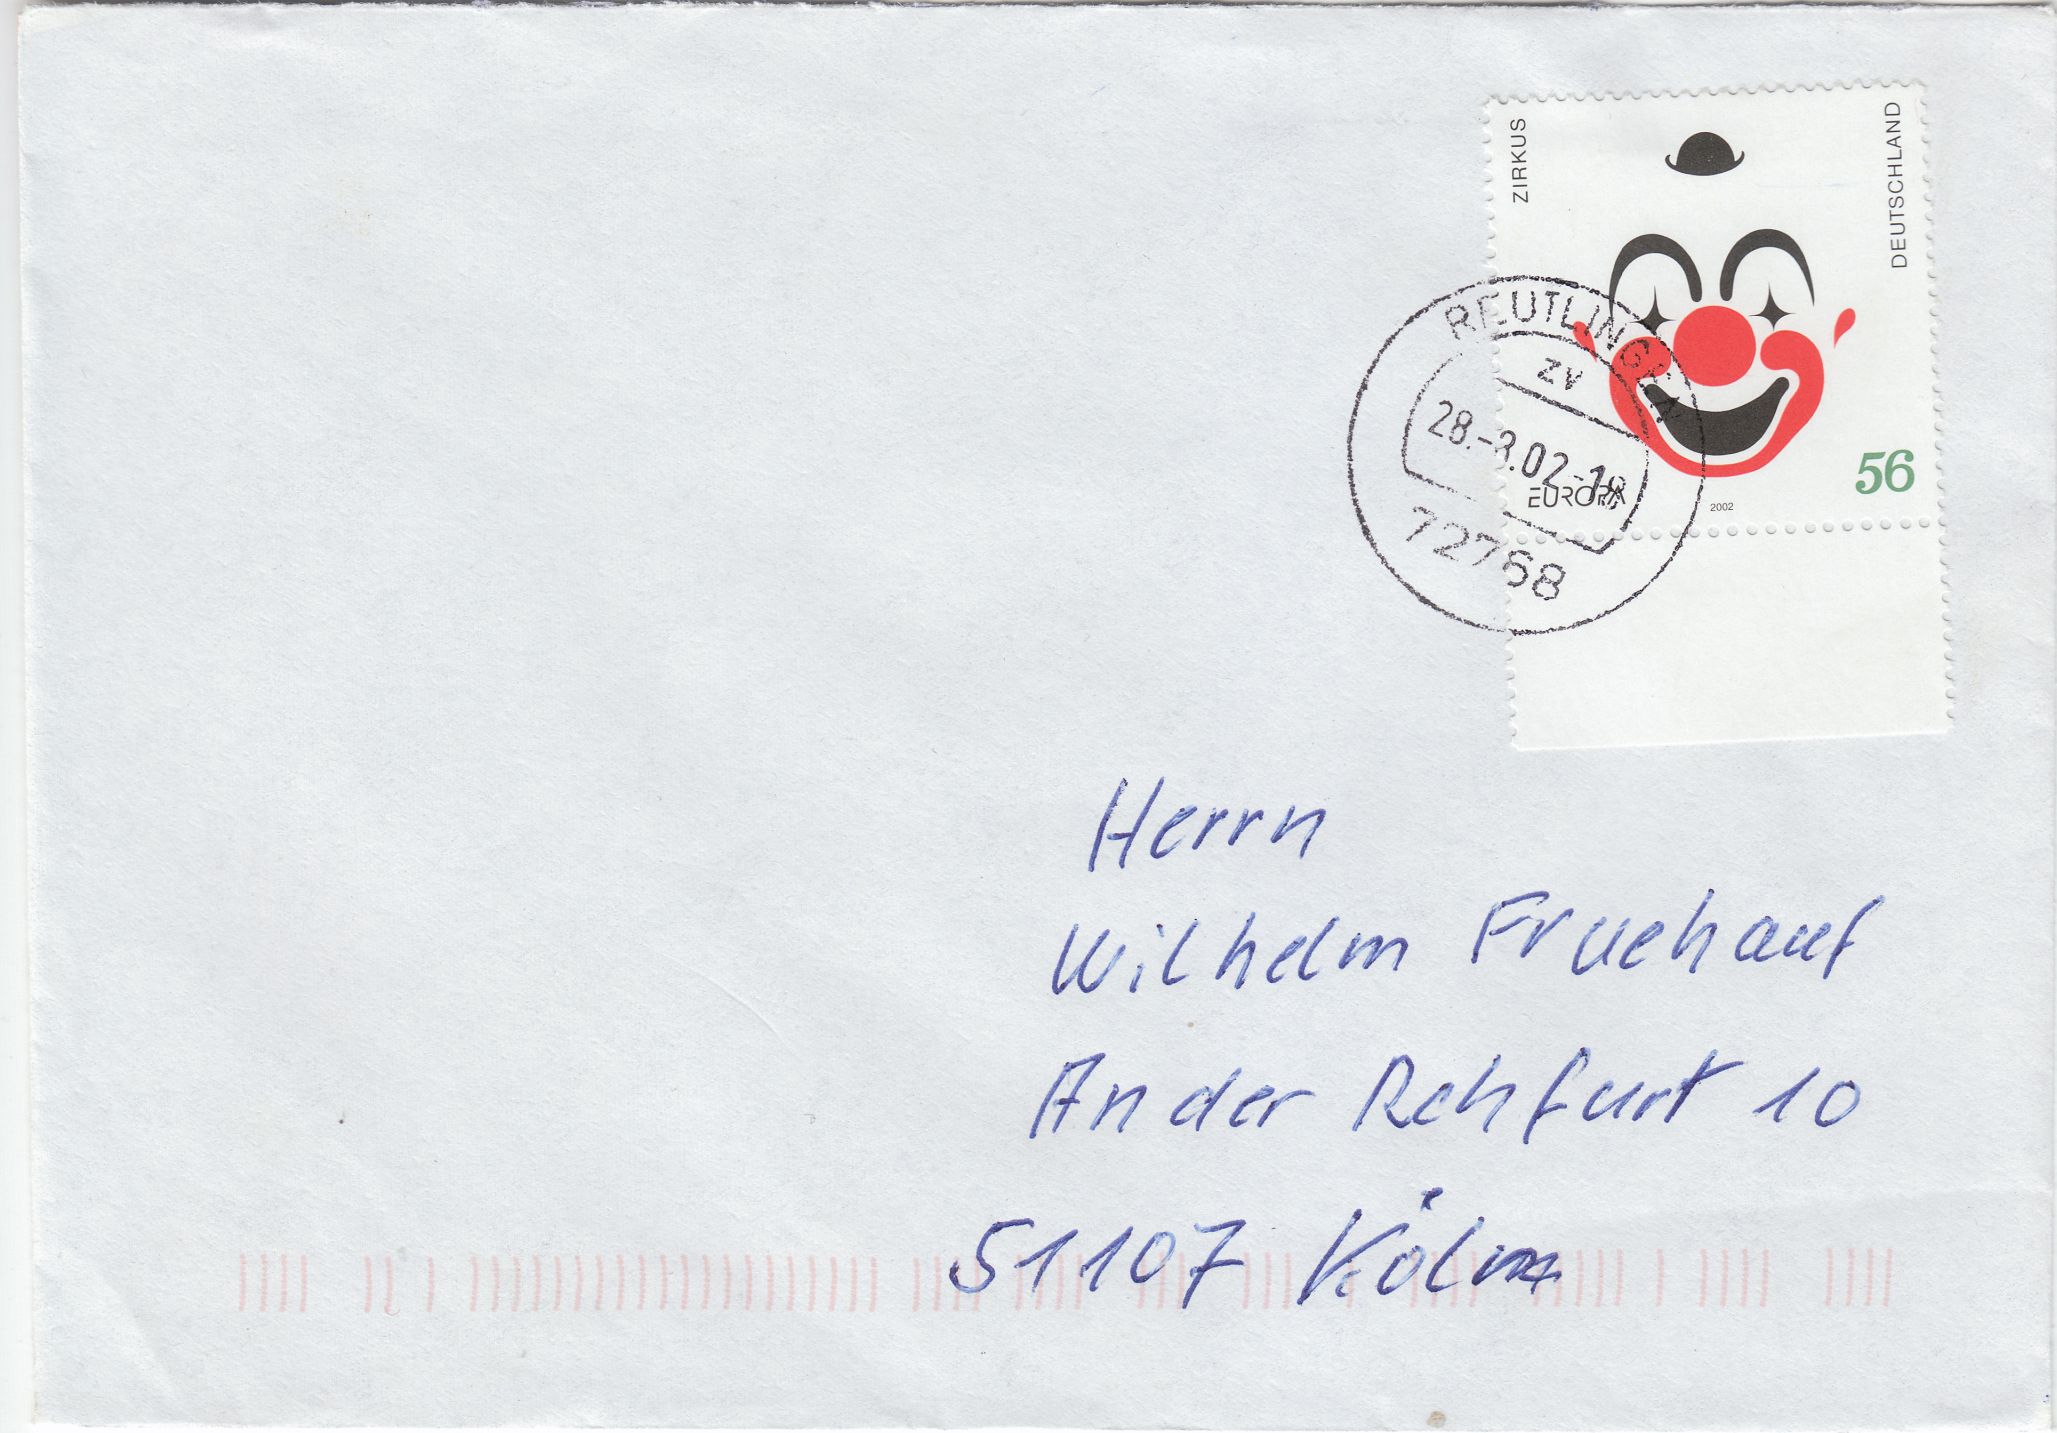 ZIRKUS
DEUTSCHLAND
REUTLINGEN
ZV
28.-3.02-18
72768
EUROPA
2002
56
Herrn
Wilhelm Fruehauf
An der Rehfurt 10
51107 Köln